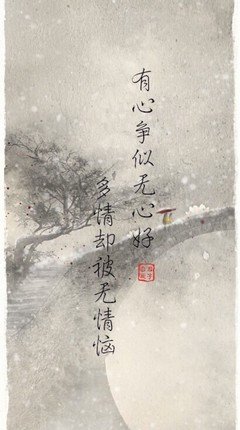 有心争似无心好
多情却被无情恼